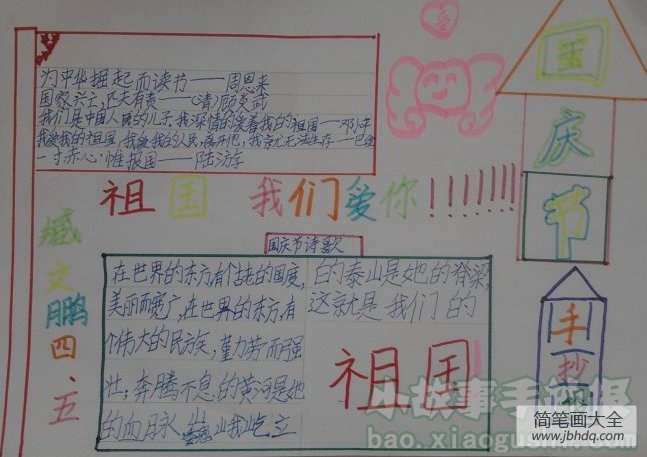 国
庆
节
为中华掘起而读书——周恩来
国家兴亡,匹夫有责——(清)顾炎武
我们是中国人民的儿子,我深情的爱着我的祖国——邓小平
我爱我的祖国,我爱我的人民,离开他,我就无法生存——巴金
一寸赤心惟报国——陆游
祖国 我们爱你!!!!!!!
臧文鹏四、五
国庆节诗歌
在世界的东方有个古老的国度,
美丽而宽广,在世界的东方,有
个伟大的民族,勤劳而强
壮;奔腾不息的黄河是她
的血脉,巍峨屹立
的泰山是她的脊梁,
这就是我们的
祖国!
手
抄
报
小故事手抄报
bao.xiaogushi.com
简笔画大全
www.jbhdq.com